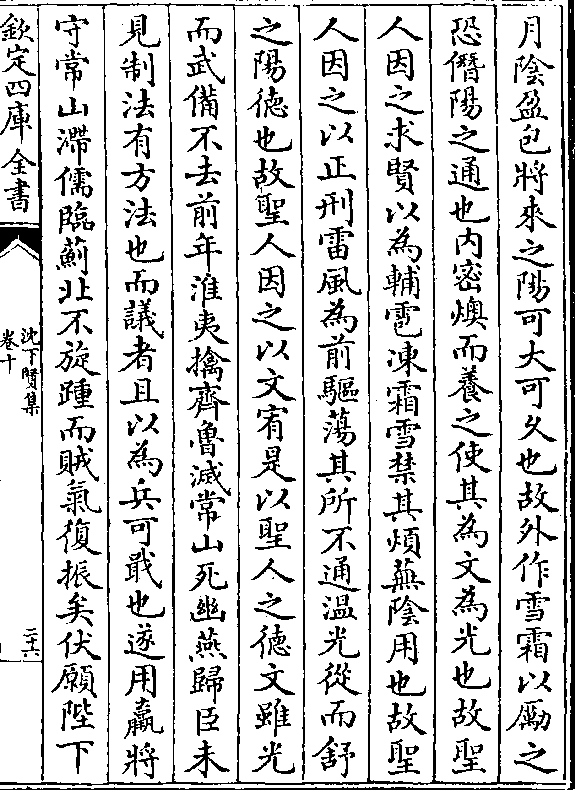 月陰盈包將來之陽可大可久也故外作雪霜以勵之
恐僭陽之通也内密燠而養之使其為文為光也故聖
人因之求賢以為輔雹凍霜雪禁其煩蕪陰用也故聖
人因之以正刑雷風為前驅蕩其所不通温光從而舒
之陽徳也故聖人因之以文宥是以聖人之徳文雖光
而武備不去前年淮夷擒齊魯滅常山死幽燕歸臣未
見制法有方法也而議者且以為兵可戢也遂用羸將
守常山滯儒臨薊北不旋踵而賊氣復振矣伏願陛下
欽定四庫全書
沈下賢集
卷十
二十六